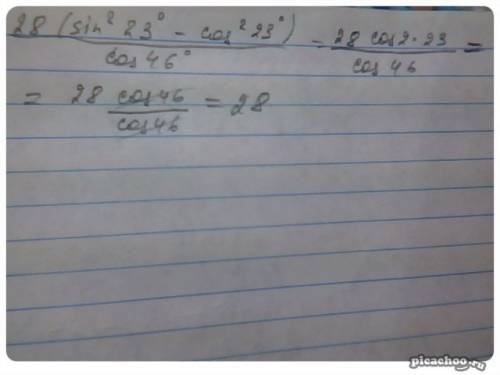 28 (sin² 23° - cos² 23°) / cos 46° = 28 cos 2·23 / cos 46 =
= 28 cos 46 / cos 46 = 28
picachoo.ru